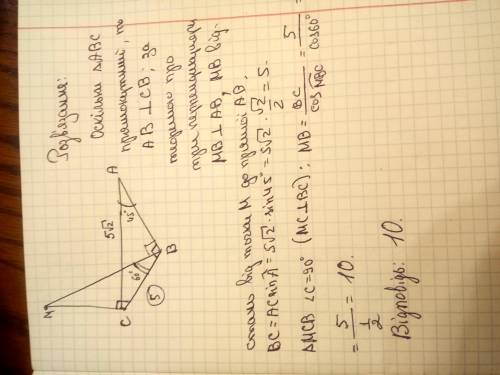 Розв'язання:
Оскільки ΔABC
прямокутний, то
AB ⊥ CB; за
теоремою про
три перпендикуляри
MB ⊥ AB, MB від-
стань від точки M до прямої AB,
BC = AC sin A = 5√2 · sin 45° = 5√2 · √2/2 = 5.
ΔMCB ∠C=90° (MC⊥BC); MB = BC/cos MBC = 5/cos 60° =
= 5/(1/2) = 10.
Відповідь: 10.
M
C
B
A
5√2
45°
60°
5